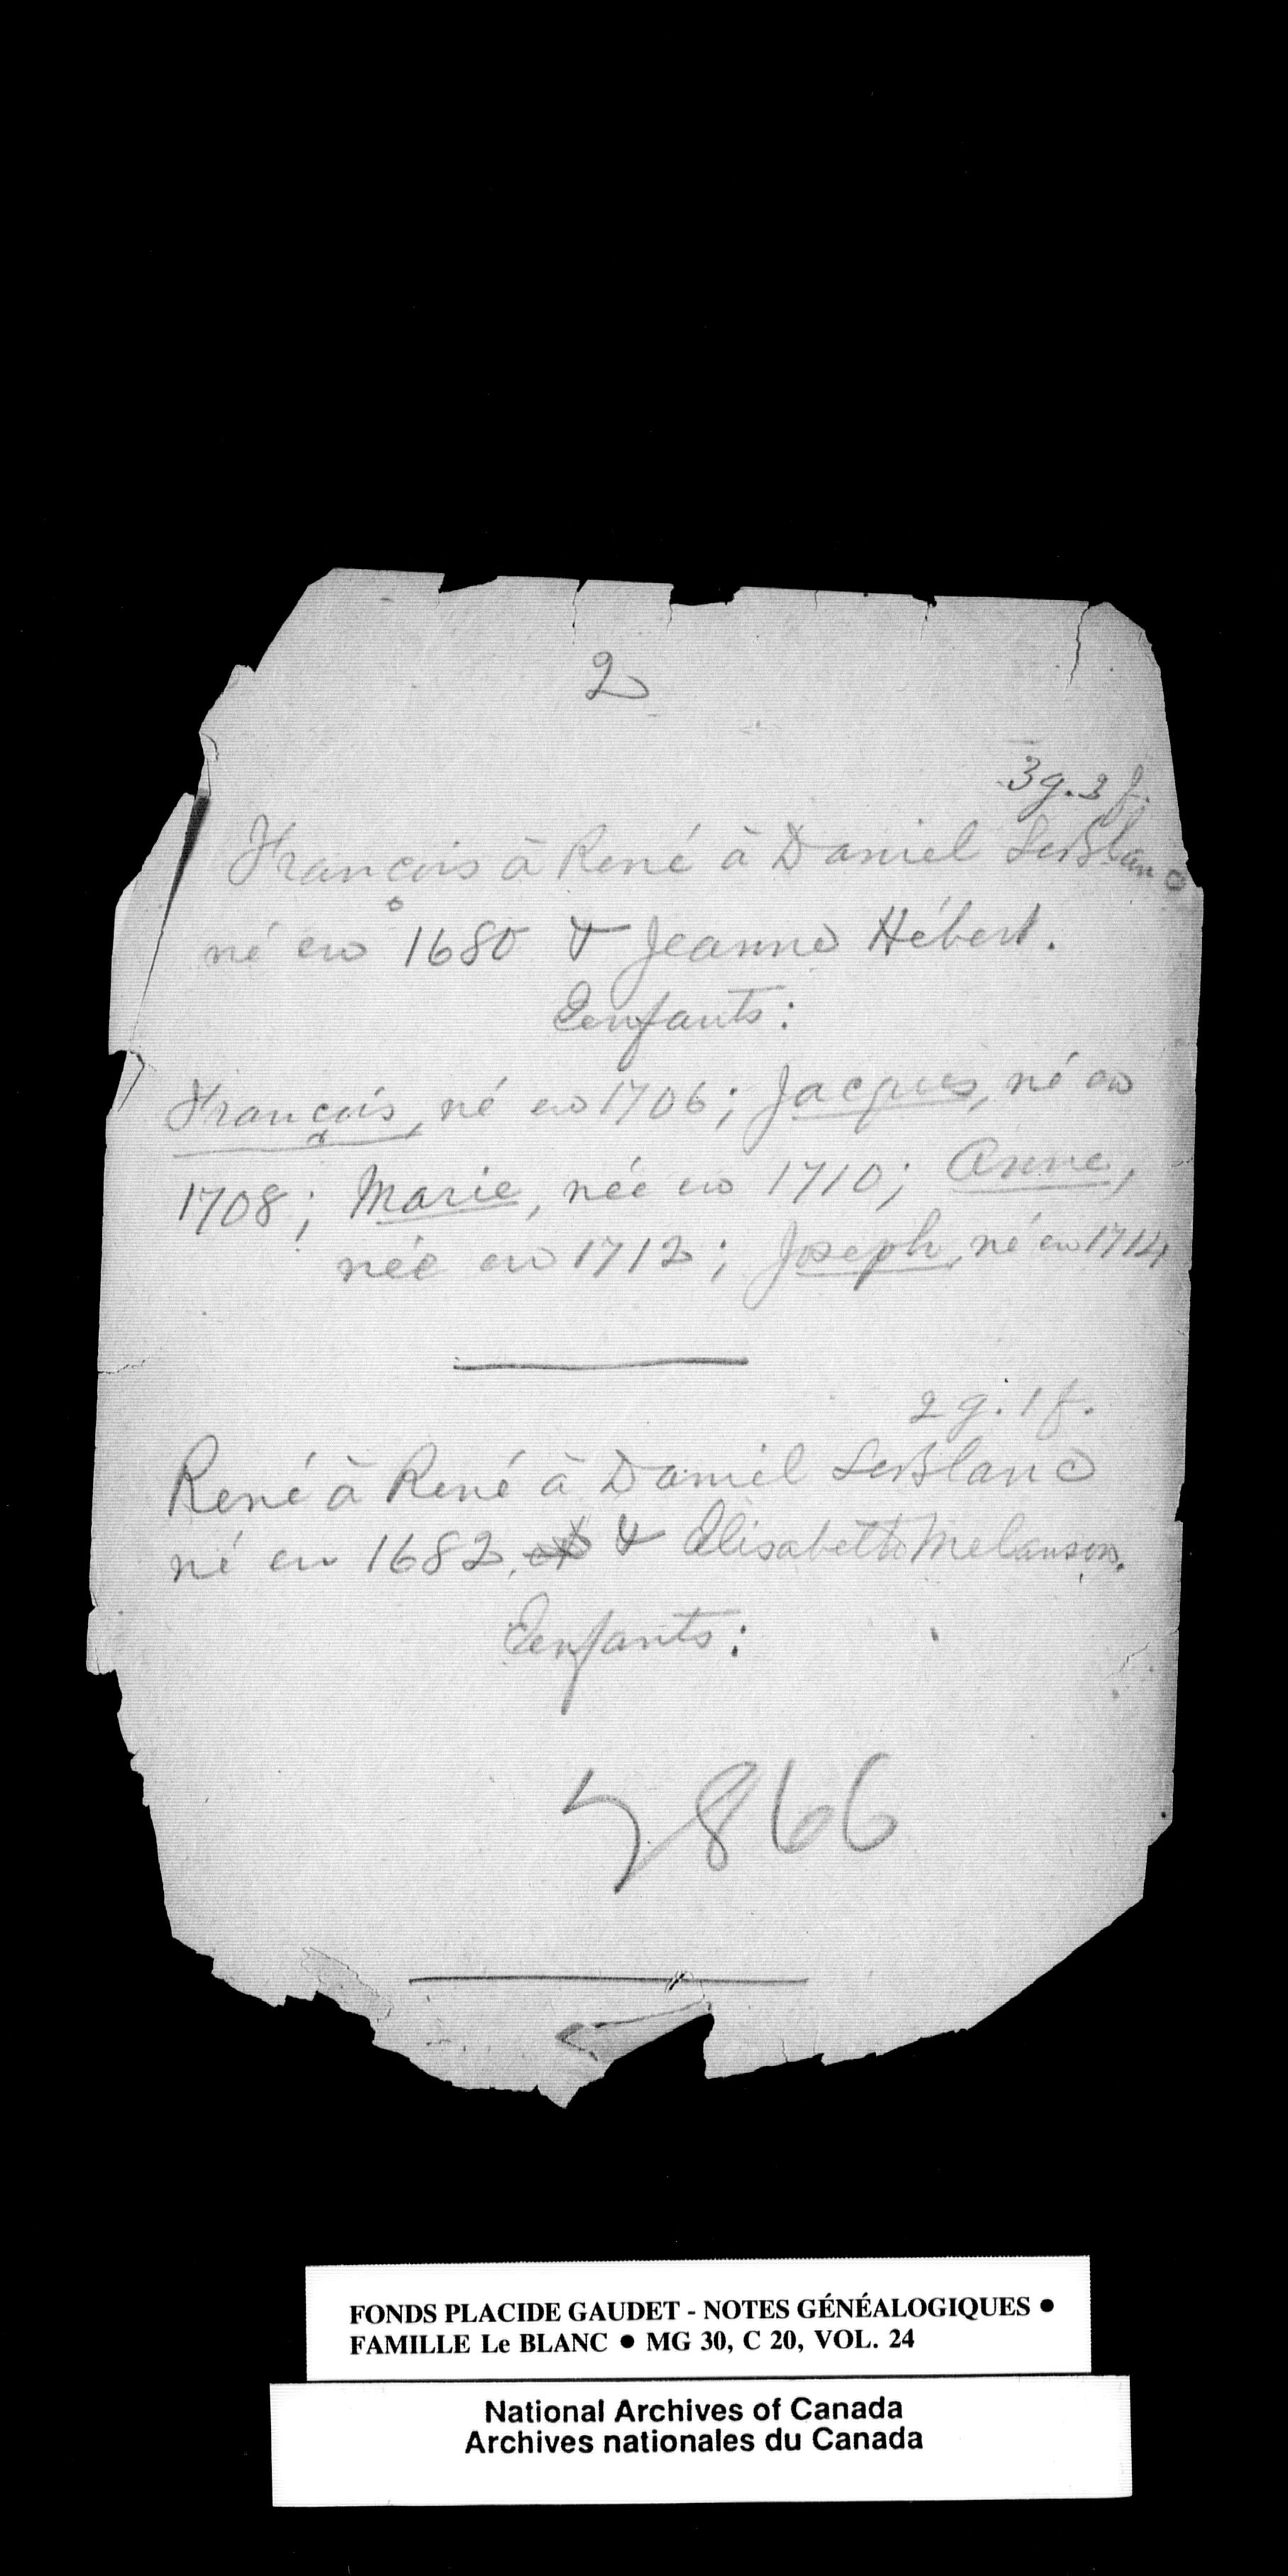 2
3 g. 2 f.
François à René à Daniel LeBlanc
né en 1680 & Jeanne Hébert.
Enfants:
François, né en 1706; Jacques, né en
1708; Marie, née en 1710; Anne,
née en 1712; Joseph, né en 1714
2 g. 1 f.
René à René à Daniel LeBlanc
né en 1682, et & Elisabeth Melanson.
Enfants:
5866
FONDS PLACIDE GAUDET - NOTES GÉNÉALOGIQUES ●
FAMILLE Le BLANC ● MG 30, C 20, VOL. 24
National Archives of Canada
Archives nationales du Canada